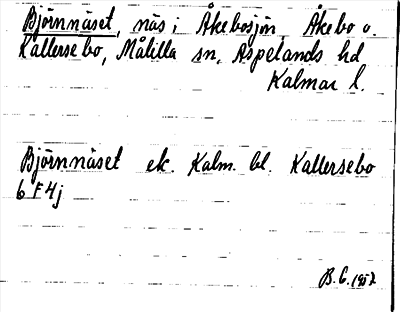 Björnnäset, näs i Åkebosjön, Åkebo o.
Kallersebo, Målilla sn, Aspelands hd
Kalmar l.
Björnnäset ek. Kalm. bl. Kallersebo
6 F 4j
B.G. 1957